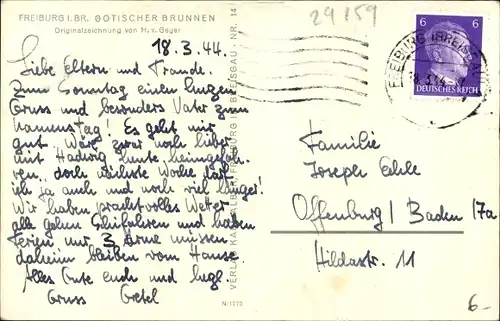 FREIBURG I. BR. GOTISCHER BRUNNEN
Originalzeichnung von H. v. Geyer
18.3.44.
Liebe Eltern und Traude.
Zum Sonntag einen kurzen
Gruss und besonders Vater zum
Namenstag! Es geht mir
gut. Wäre zwar noch lieber
mit Hedwig heute heimgefah-
ren, doch nächste Woche darf
ich ja auch und noch viel länger!
Wir haben prachtvolles Wetter
alle gehen Skifahren und haben
Ferien, nur 3 Arme müssen
daheim bleiben vom Hause.
Alles Gute euch und hzgl.
Gruss Gretel
VERLAG KARL FREIBURG IM BREISGAU. NR. 14
N/1773
29159
6 6
DEUTSCHES REICH
FREIBURG (BREISGAU)
18.3.44
Familie
Joseph
Offenburg / Baden 17a
Hildastr. 11
6-